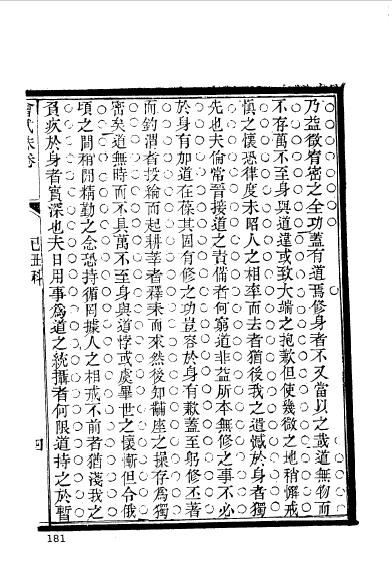 乃益徵脩密之全功蓋有道焉修身者不又當以之哉道無物而
不存萬不至身與道違或致大端之抱歉但使幾微之地稍懈戒
慎之懷恐律度未昭人之相率而去者猶後我之遺憾於身者獨
先也夫倫常晉接道之責備者何窮道非益所本無修之事不必
於身有加道在葆其固有修之功豈容於身有歉蓋至躬修丕著
而釣渭者投綸而起耕莘者釋耒而來然後知黼座之操存為獨
密矣道無時而不具萬不至身與道悖或虞畢世之懷慚但令俄
頃之間稍閒精勤之念恐持循罔據人之相戒不前者猶淺我之
負疚於身者實深也夫日用事為道之統攝者何限道持之於暫
會試硃卷
己丑科
四
181